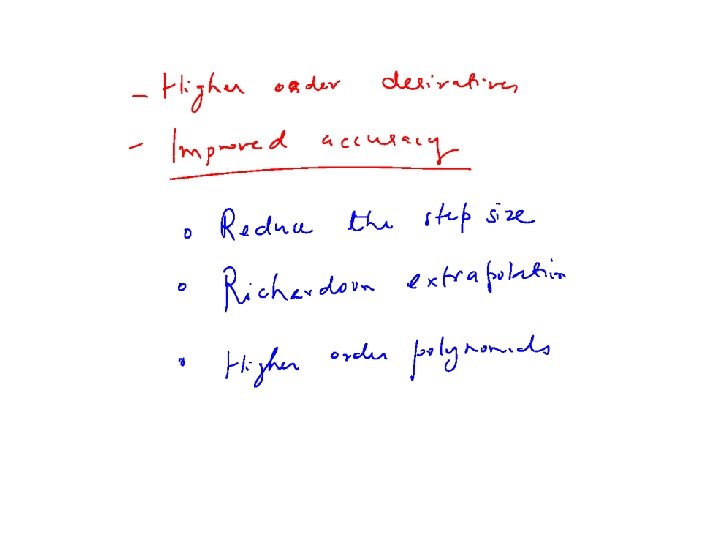 - Higher order derivatives
- Improved accuracy
o Reduce the step size
o Richardson extrapolation
• Higher order polynomials